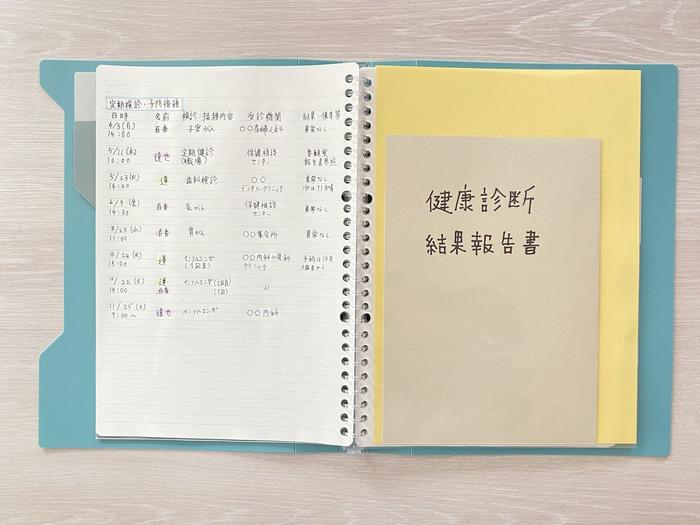 定期検診・予防接種
日時 名前 検診・接種内容 受診機関 結果・備考
4/3(月) 百香 子宮がん ○○産婦人科 異常なし
14:00
5/11(木) 達也 定期健診 保健相談
10:00 (職場) センター 報告書参照
5/23(火) 歯科検診 ○○ 異常なし
16:00 デンタルクリニック 次は11月頃
6/9(金) 百香 乳がん 保健相談 異常なし
14:30 センター
8/23(水) 百香 胃がん ○○集会所 異常なし
11:00
10/24(火) インフルエンザ ○○内科小児科 予約は10月
15:00 (1回目) クリニック 1週目から
11/22(水) インフルエンザ(2回目)
百香 (1回) 〃
11/25(土) 達也 インフルエンザ ○○内科
9:00〜
健康診断
結果報告書